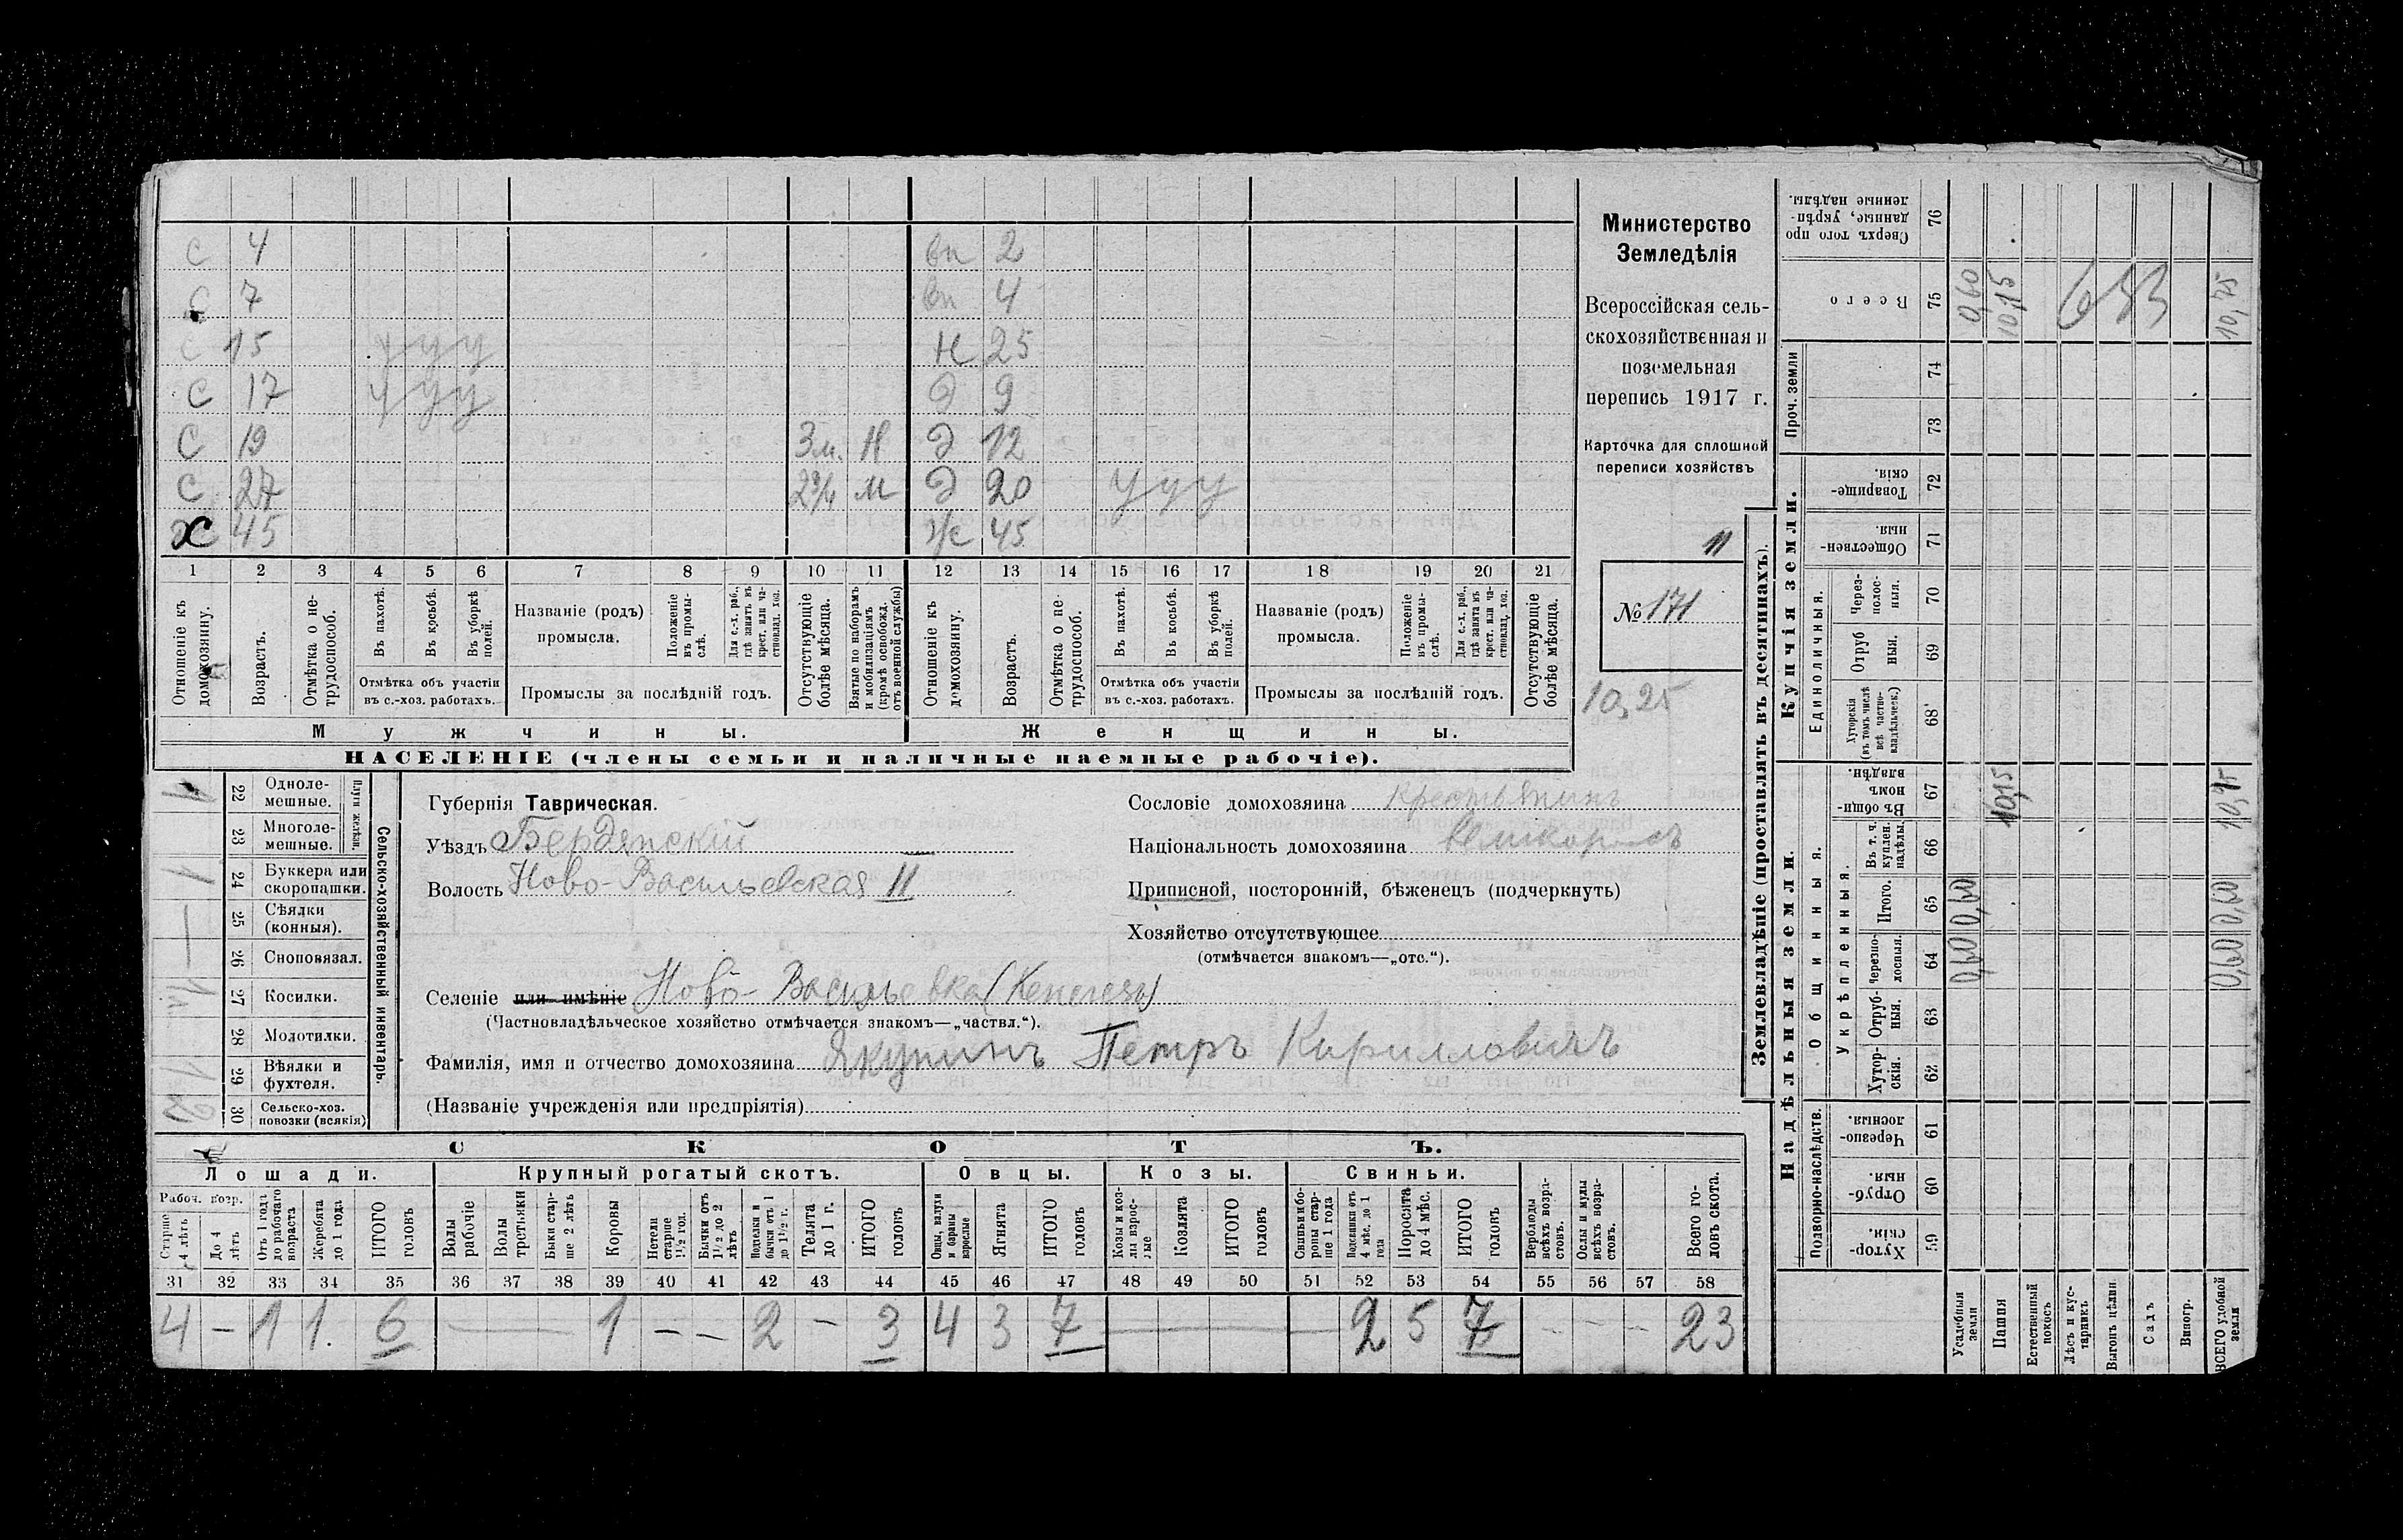 С 4 вн 2
С 7 вн 4
С 15 у у у н 25
С 17 у у у Э 9
С 19 3 м. Н Э 12
С 27 2¾ М Э 20 у у у
Х 45 ж 45
1 2 3 4 5 6 7 8 9 10 11 12 13 14 15 16 17 18 19 20 21
Отношеніе къ домохозяину.
Возрастъ.
Отмѣтка о не-трудоспособ.
Въ пахотѣ.
Въ косьбѣ.
Въ уборкѣ полей.
Отмѣтка объ участіи въ с.-хоз. работахъ.
Названіе (родъ) промысла.
Положеніе въ промы-слѣ.
Для с.-х. раб., гдѣ занятъ въ крест. или ча-стновлад. хоз.
Промыслы за послѣдній годъ.
Отсутствующіе болѣе мѣсяца.
Взятые по наборамъ и мобилизаціямъ (кромѣ освобожд. отъ военной службы)
Отношеніе къ домохозяину.
Возрастъ.
Отмѣтка о не-трудоспособ.
Въ пахотѣ.
Въ косьбѣ.
Въ уборкѣ полей.
Отмѣтка объ участіи въ с.-хоз. работахъ.
Названіе (родъ) промысла.
Положеніе въ промы-слѣ.
Для с.-х. раб., гдѣ занята въ крест. или ча-стновлад. хоз.
Промыслы за послѣдній годъ.
Отсутствующіе болѣе мѣсяца.
Мужчины. Женщины.
НАСЕЛЕНІЕ (члены семьи и наличные наемные рабочіе).
Министерство
Земледѣлія
Всероссійская сель-
скохозяйственная и
поземельная
перепись 1917 г.
Карточка для сплошной
переписи хозяйствъ
11
№ 171
10,25
Сельско-хозяйственный инвентарь.
Плуги желѣзн.
22 Одноле-мешные. 1
23 Многоле-мешные.
24 Буккера или скоропашки. 1
25 Сѣялки (конныя). —
26 Сноповязал. —
27 Косилки.
28 Молотилки.
29 Вѣялки и фухтеля. 1
30 Сельско-хоз. повозки (всякія)
Губернія Таврическая.
Уѣздъ Бердянскій
Волость Ново-Васильевская II
Селеніе или имѣніе Ново-Васильевка (Кенегезъ)
(Частновладѣльческое хозяйство отмѣчается знакомъ—„частвл.“).
Фамилія, имя и отчество домохозяина Якунинъ Петръ Кирилловичъ
(Названіе учрежденія или предпріятія)
Сословіе домохозяина крестьянинъ
Національность домохозяина великороссъ
Приписной, посторонній, бѣженецъ (подчеркнуть)
Хозяйство отсутствующее
(отмѣчается знакомъ—„отс.“).
СКОТЪ.
Лошади. Крупный рогатый скотъ. Овцы. Козы. Свиньи.
Рабоч. возр.
Старше 4 лѣтъ
До 4 лѣтъ
Отъ 1 года до рабочаго возраста
Жеребята до 1 года
ИТОГО головъ
Волы рабочіе
Волы третьяки
Быки стар-ше 2 лѣтъ
Коровы
Нетели старше 1½ год.
Бычки отъ 1½ до 2 лѣтъ
Подтелки и бычки отъ 1 до 1½ г.
Телята до 1 г.
ИТОГО головъ
Овцы, валухи и бараны взрослые
Ягнята
ИТОГО головъ
Козы и коз-лы взрос-лые
Козлята
ИТОГО головъ
Свиньи и бо-ровы стар-ше 1 года
Подсвинки отъ 4 мѣс. до 1 года
Поросята до 4 мѣс.
ИТОГО головъ
Верблюды всѣхъ возра-стовъ.
Ослы и мулы всѣхъ возра-стовъ.
Всего го-ловъ скота.
31 32 33 34 35 36 37 38 39 40 41 42 43 44 45 46 47 48 49 50 51 52 53 54 55 56 57 58
4 — 1 1. 6 — 1 — — 2 — 3 4 3 7 — 2 5 7 — — — 23
Землевладѣніе (проставлять въ десятинахъ).
Надѣльныя земли. Купчія земли. Проч. земли
Подворно-наслѣдств. Общинныя. Укрѣпленныя. Единоличныя.
59 Хутор-скія.
60 Отруб-ныя.
61 Черезпо-лосныя.
62 Хутор-скія.
63 Отруб-ныя.
64 Черезпо-лосныя.
65 Итого.
66 Въ т. ч. куплен. надѣлы.
67 Въ общин-номъ владѣн.
68 Хуторскія (въ томъ числѣ всѣ частно-владѣльческ.)
69 Отруб ныя.
70 Через-полос-ныя.
71 Обществен-ныя.
72 Товарище-скія.
73
74
75 Всего
76 Сверхъ того про данные, укрѣп-ленные надѣлы.
Усадебныя земли 0,60 0,60 0,60
Пашня 10,15 10,15
Естественный покосъ
Лѣсъ и кус-тарникъ
Выгонъ цѣлин.
Садъ
Виногр.
ВСЕГО удобной земли 0,60 0,60 10,75
653